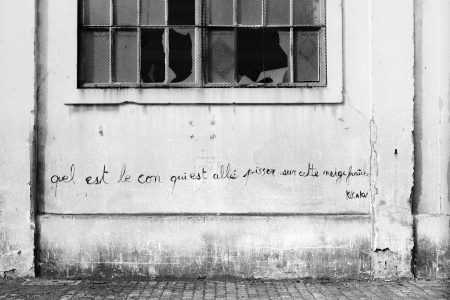 quel est le con qui est allé pisser sur cette neige fraîche